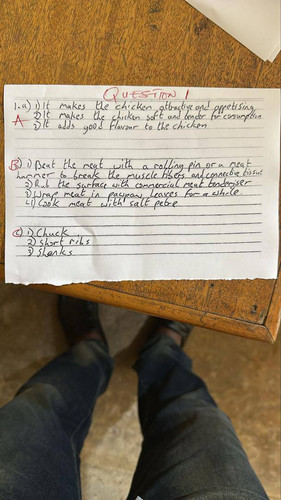 QUESTION 1
1.a) 1) It makes the chicken attractive and appetising
A 2) It makes the chicken soft and tender for consumption
3) It adds good flavour to the chicken
B) 1) Beat the meat with a rolling pin or a meat
hammer to break the muscle fibers and connective tissues
2) Rub the surface with commercial meat tenderiser
3) Wrap meat in pawpaw leaves for a while
4) Cook meat with salt petre
C) 1) Chuck
2) Short ribs
3) Shanks